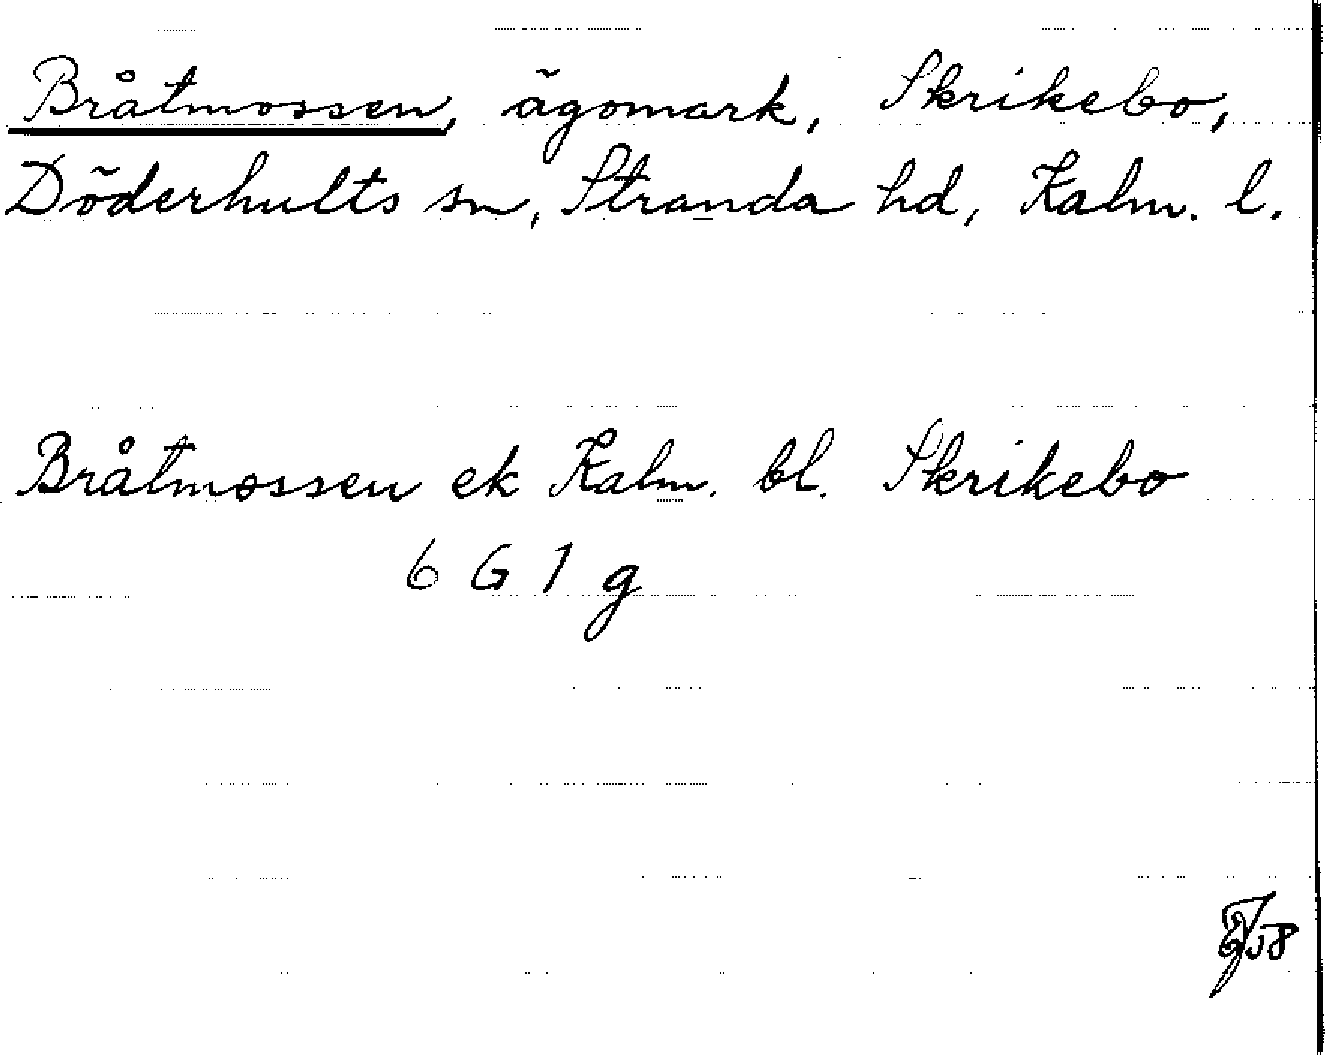 Bråtmossen, ägomark, Skrikebo,
Döderhults sn, Stranda hd, Kalm. l.
Bråtmossen ek Kalm. bl. Skrikebo
6 G 1 g
58